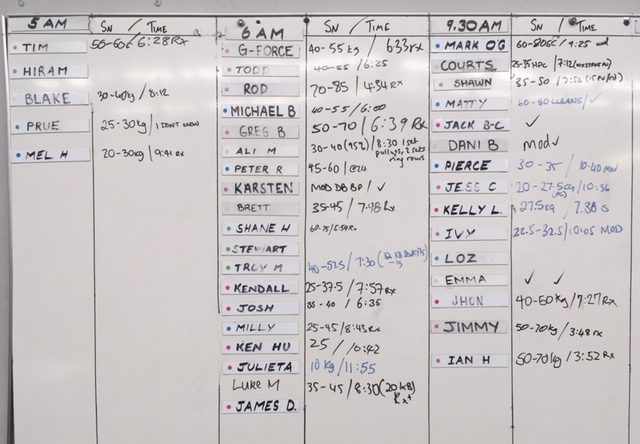 5 AM SN / TIME
TIM 50-60k 6:28 Rx
HIRAM
BLAKE 30-40kg / 8:12
PRUE 25-30kg / I DONT KNOW
MEL H 20-30kg / 9:41 Rx
6 AM SN / TIME
G-FORCE 40-55 kg / 633rx
TODD 40-55 / 6:25
ROD 70-85 / 4:34 Rx
MICHAEL B 40-55 / 6:00
GREG B 50-70 / 6:39 Rx
ALI M 30-40 (45%) / 8:30 1 set
pull ups, 2 sets
ring rows
PETER R 45-60 /
KARSTEN MOD DB BP / ✓
BRETT 35-45 / 7:48 Rx
SHANE H 60-75 /
STEWART
TROY M 40-52.5 / 7:30
KENDALL 25-37.5 / 7:57 Rx
JOSH 35-40 / 6:35
MILLY 25-45 / 8:43 Rx
KEN HU 25 / 6:42
JULIETA 10 kg / 11:55
Luke M 35-45 / 8:30 (20 kB)
Rx+
JAMES D.
9.30AM SN / TIME
MARK O'G 60-80SC / 9:25 mod
COURTS 7:12
SHAWN 35-50 / 7:52
MATTY 60-80 CLEANS / ✓
JACK B-C ✓
DANI B MOD ✓
PIERCE 30-35 / 10:40 MOD
JESS C 20-27.5kg / 10:56
KELLY L. 27.5kg / 7.38 S
IVY 22.5-32.5 / 10:05 MOD
LOZ
EMMA ✓ ✓
JHON 40-60kg / 7:27 Rx
JIMMY 50-70kg / 3:48 rx
IAN H 50-70kg / 3:52 Rx